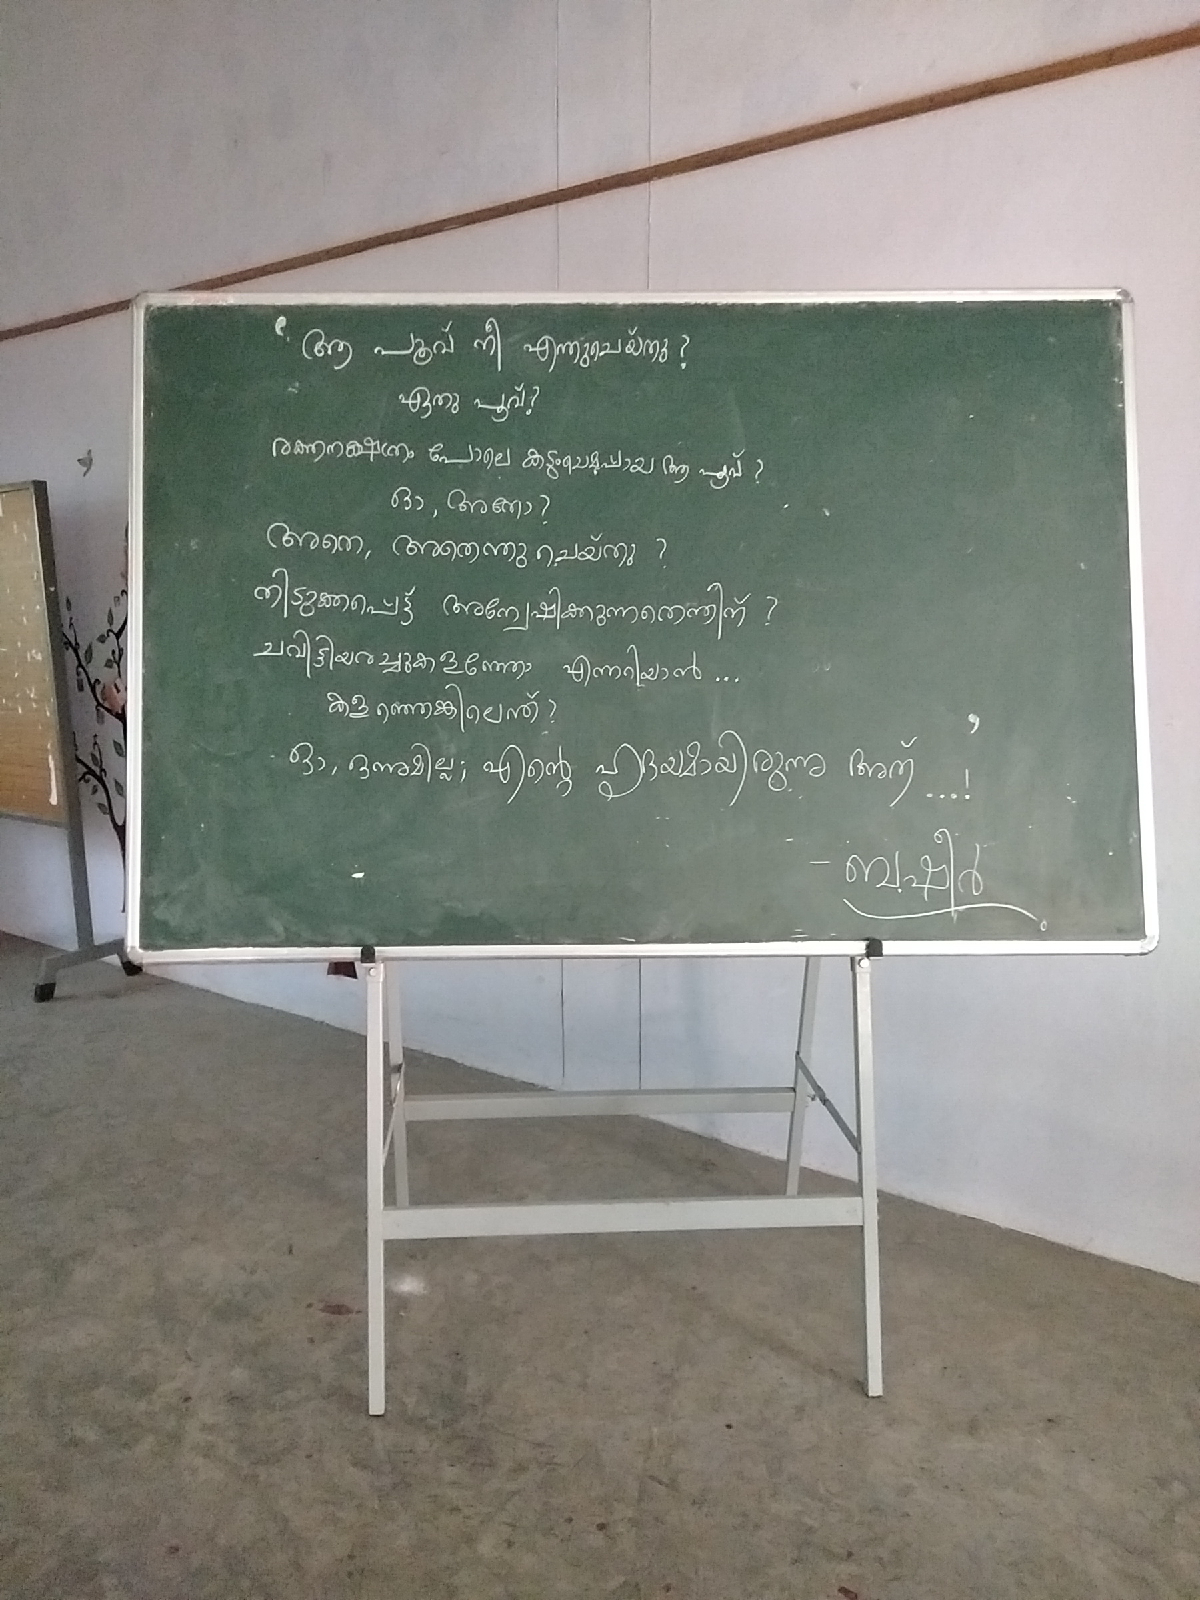 ‘ ആ പൂവ് നീ എന്തുചെയ്തു ?
ഏതു പൂവ് ?
രക്തനക്ഷത്രം പോലെ കടുംചെമപ്പായ ആ പൂവ് ?
ഓ , അതോ ?
അതെ, അതെന്തു ചെയ്തു ?
തിടുക്കപ്പെട്ട് അന്വേഷിക്കുന്നതെന്തിന് ?
ചവിട്ടിയരച്ചുകളഞ്ഞോ എന്നറിയാൻ ...
കളഞ്ഞെങ്കിലെന്ത് ?
ഓ , ഒന്നുമില്ല ; എന്റെ ഹൃദയമായിരുന്നു അത് ...! ’
- ബഷീർ